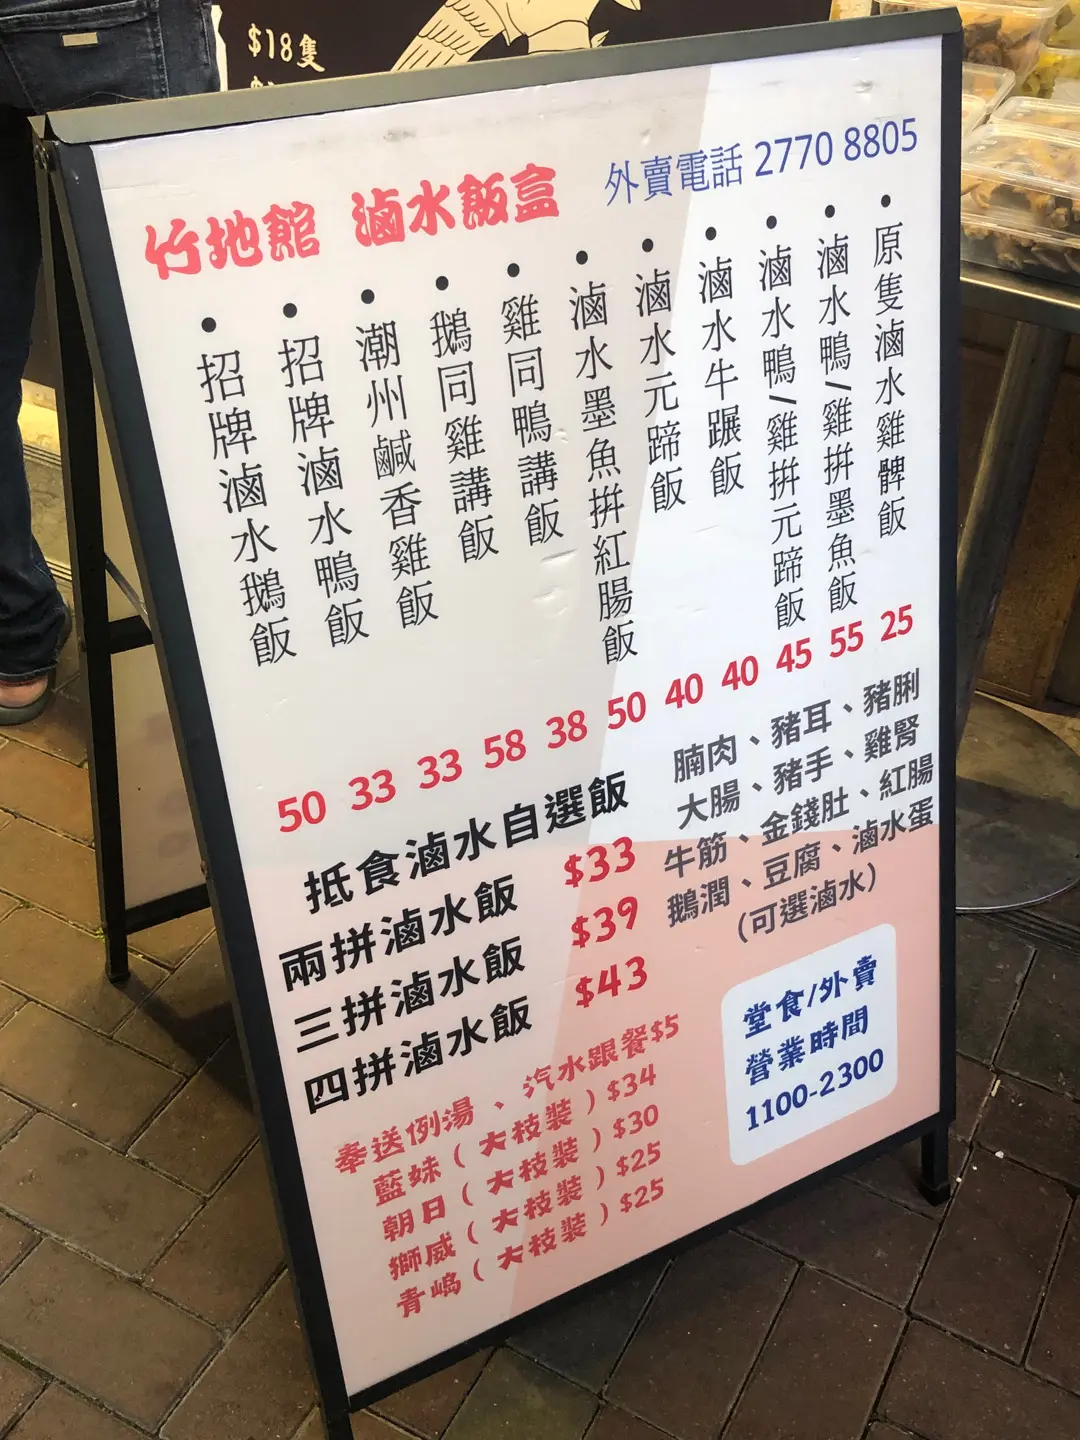 $18隻
竹地館 滷水飯盒
外賣電話 2770 8805
• 招牌滷水鵝飯
• 招牌滷水鴨飯
• 潮州鹹香雞飯
• 鵝同雞講飯
• 雞同鴨講飯
• 滷水墨魚拼紅腸飯
• 滷水元蹄飯
• 滷水牛蹍飯
• 滷水鴨/雞拼元蹄飯
• 滷水鴨/雞拼墨魚飯
• 原隻滷水雞髀飯
50 33 33 58 38 50 40 40 45 55 25
抵食滷水自選飯
兩拼滷水飯 $33
三拼滷水飯 $39
四拼滷水飯 $43
腩肉、豬耳、豬脷
大腸、豬手、雞腎
牛筋、金錢肚、紅腸
鵝潤、豆腐、滷水蛋
(可選滷水)
奉送例湯、汽水跟餐$5
藍妹(大枝裝)$34
朝日(大枝裝)$30
獅威(大枝裝)$25
青嶋(大枝裝)$25
堂食/外賣
營業時間
1100-2300